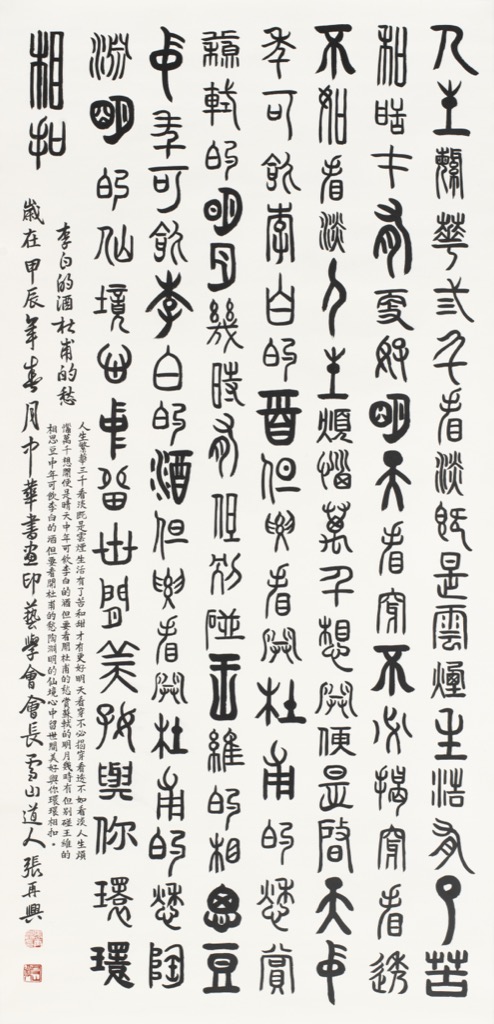 人生繁華弎千看淡既是雲煙生活有了苦
和甜才有更好明天看穿不必揭穿看透
不如看淡人生煩惱萬千想開便是晴天中
年可飲李白的酒但要看開杜甫的愁賞
蘇軾的明月幾時有但別碰王維的相思豆
中年可飲李白的酒但要看開杜甫的愁陶
淵明的仙境心中留世間美好與你環環
相扣
李白的酒杜甫的愁
人生繁華三千看淡既是雲煙生活有了苦和甜才有更好明天看穿不必揭穿看透不如看淡人生煩
惱萬千想開便是晴天中年可飲李白的酒但要看開杜甫的愁賞蘇軾的明月幾時有但別碰王維的
相思豆中年可飲李白的酒但要看開杜甫的愁陶淵明的仙境心中留世間美好與你環環相扣。
歲在甲辰年春月中華書畫印藝學會會長雪山道人張再興